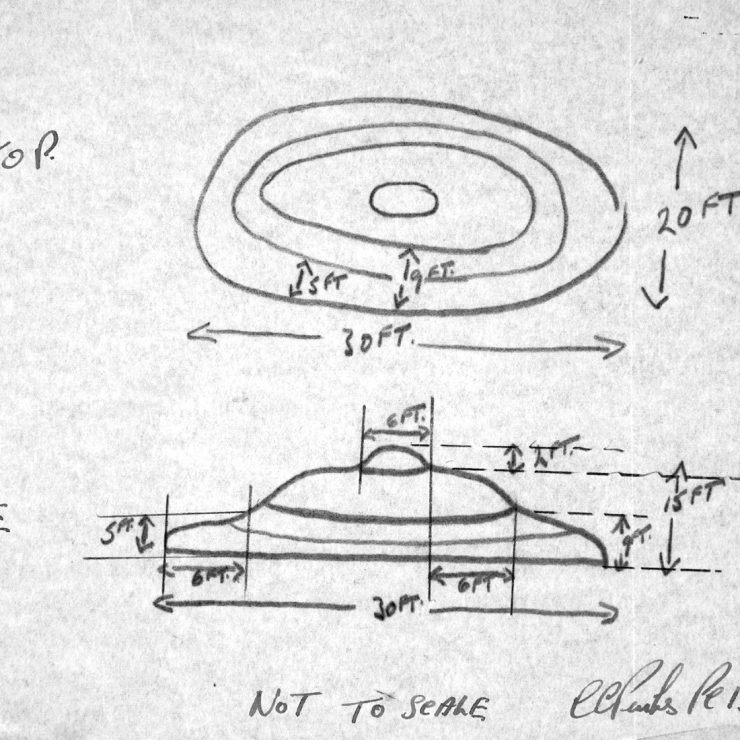 TOP.
20 FT
5 FT
9 FT.
30 FT.
6 FT.
5 FT.
15 FT
9 FT.
6 FT.
6 FT
30 FT.
NOT TO SCALE